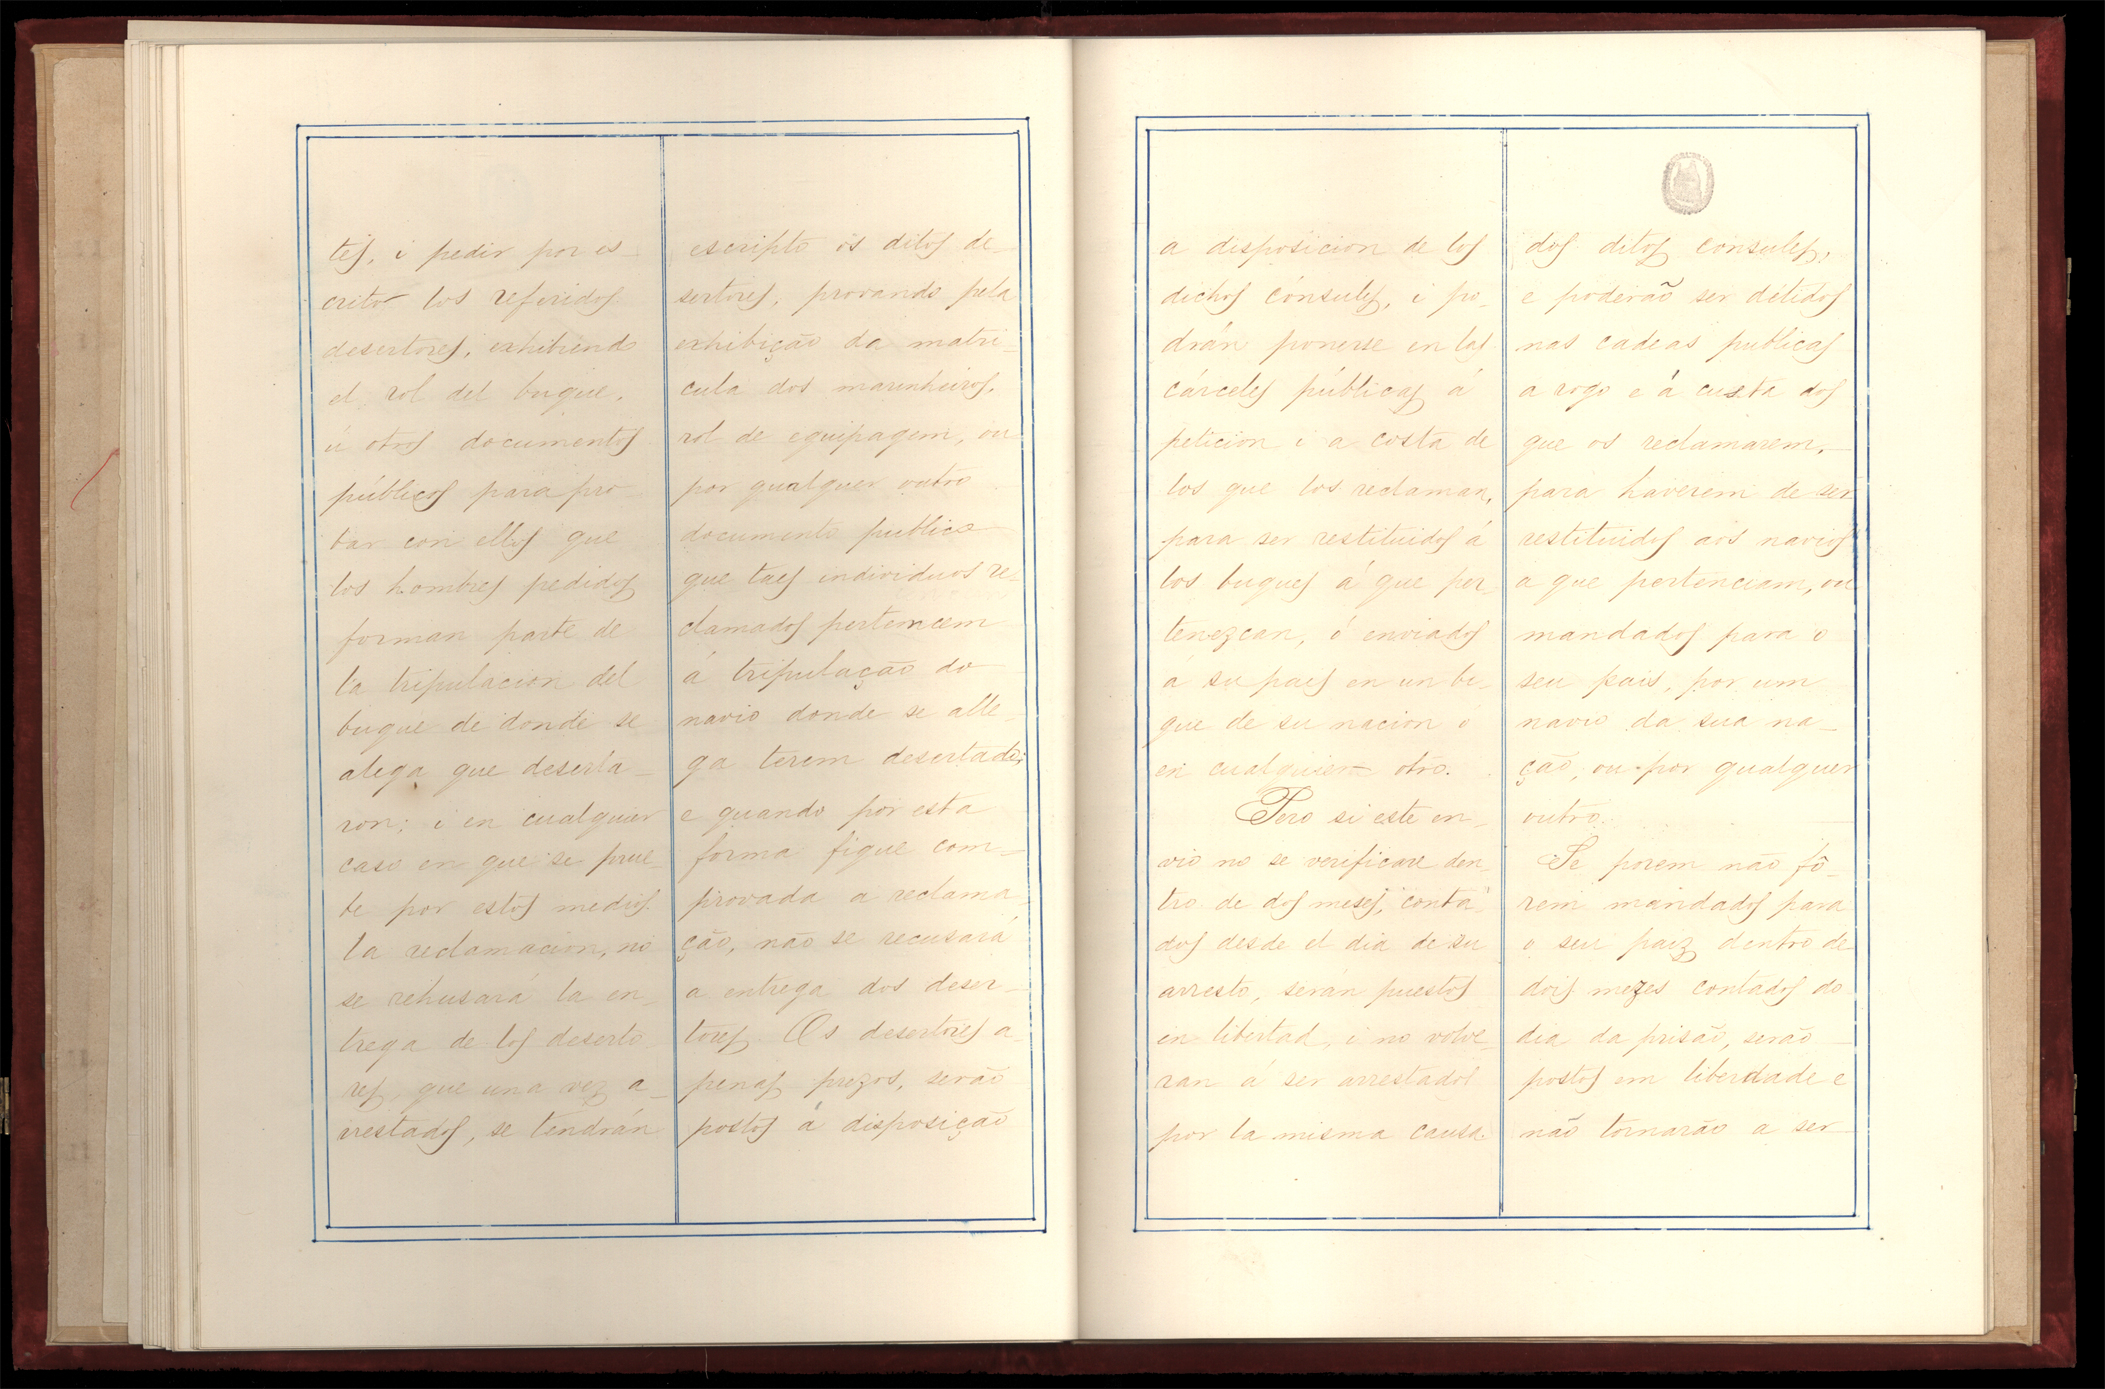 tes, i pedir por es-
crito los referidos
desertores, exhibiendo
el rol del buque,
ú otros documentos
públicos para pro-
bar con ellos que
los hombres pedidos
forman parte de
la tripulacion del
buque de donde se
alega que deserta-
ron; i en cualquier
caso en que se prue-
be por estos medios
la reclamacion, no
se rehusará la en-
trega de los deserto
res, que una vez a-
rrestados, se tendrán
escripto os ditos de-
sertores, provando pela
exhibição da matri-
cula dos marinheiros,
rol de equipagem, ou
por qualquer outro
documento publico
que taes individuos re-
clamados pertencem
á tripulação do
navio donde se alle-
ga terem desertado;
e quando por esta
forma fique com-
provada a reclama-
ção, não se recusará
a entrega dos deser-
tores. Os desertores a-
penas prezos, serão
postos á disposição
a disposicion de los
dichos cónsules, i po-
drán ponerse en las
cárceles públicas á
peticion i a costa de
los que los reclaman,
para ser restituidos á
los buques á que per-
tenezcan, ó enviados
á su pais en un bu-
que de su nacion ó
en cualquier otro.
Pero si este en-
vio no se verificare den-
tro de dos meses, conta-
dos desde el dia de su
arresto, serán puestos
en libertad, i no volve-
ran á ser arrestados
por la misma causa.
dos ditos consules,
e poderão ser detidos
nas cadeas publicas
a rogo e á custa dos
que os reclamarem,
para haverem de ser
restituidos aos navios
a que pertenciam, ou
mandados para o
seu pais, por um
navio da sua na-
ção, ou por qualquer
outro.
Se porem não fô-
rem mandados para
o seu paiz dentro de
dois mezes contados do
dia da prisão, serão
postos em liberdade e
não tornarão a ser